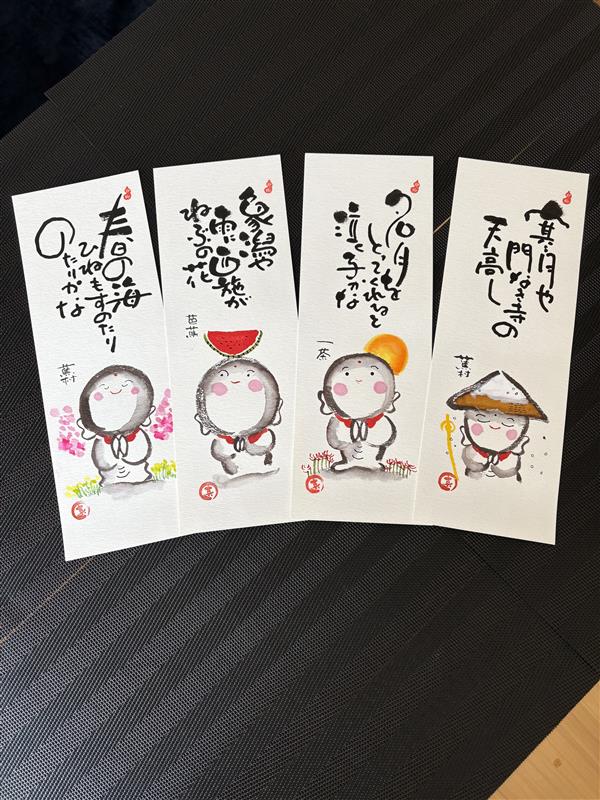 春の海
ひねもすのたり
のたりかな
蕪村
象潟や
雨に西施が
ねぶの花
芭蕉
名月を
とってくれろと
泣く子かな
一茶
寒月や
門なき寺の
天高し
蕪村